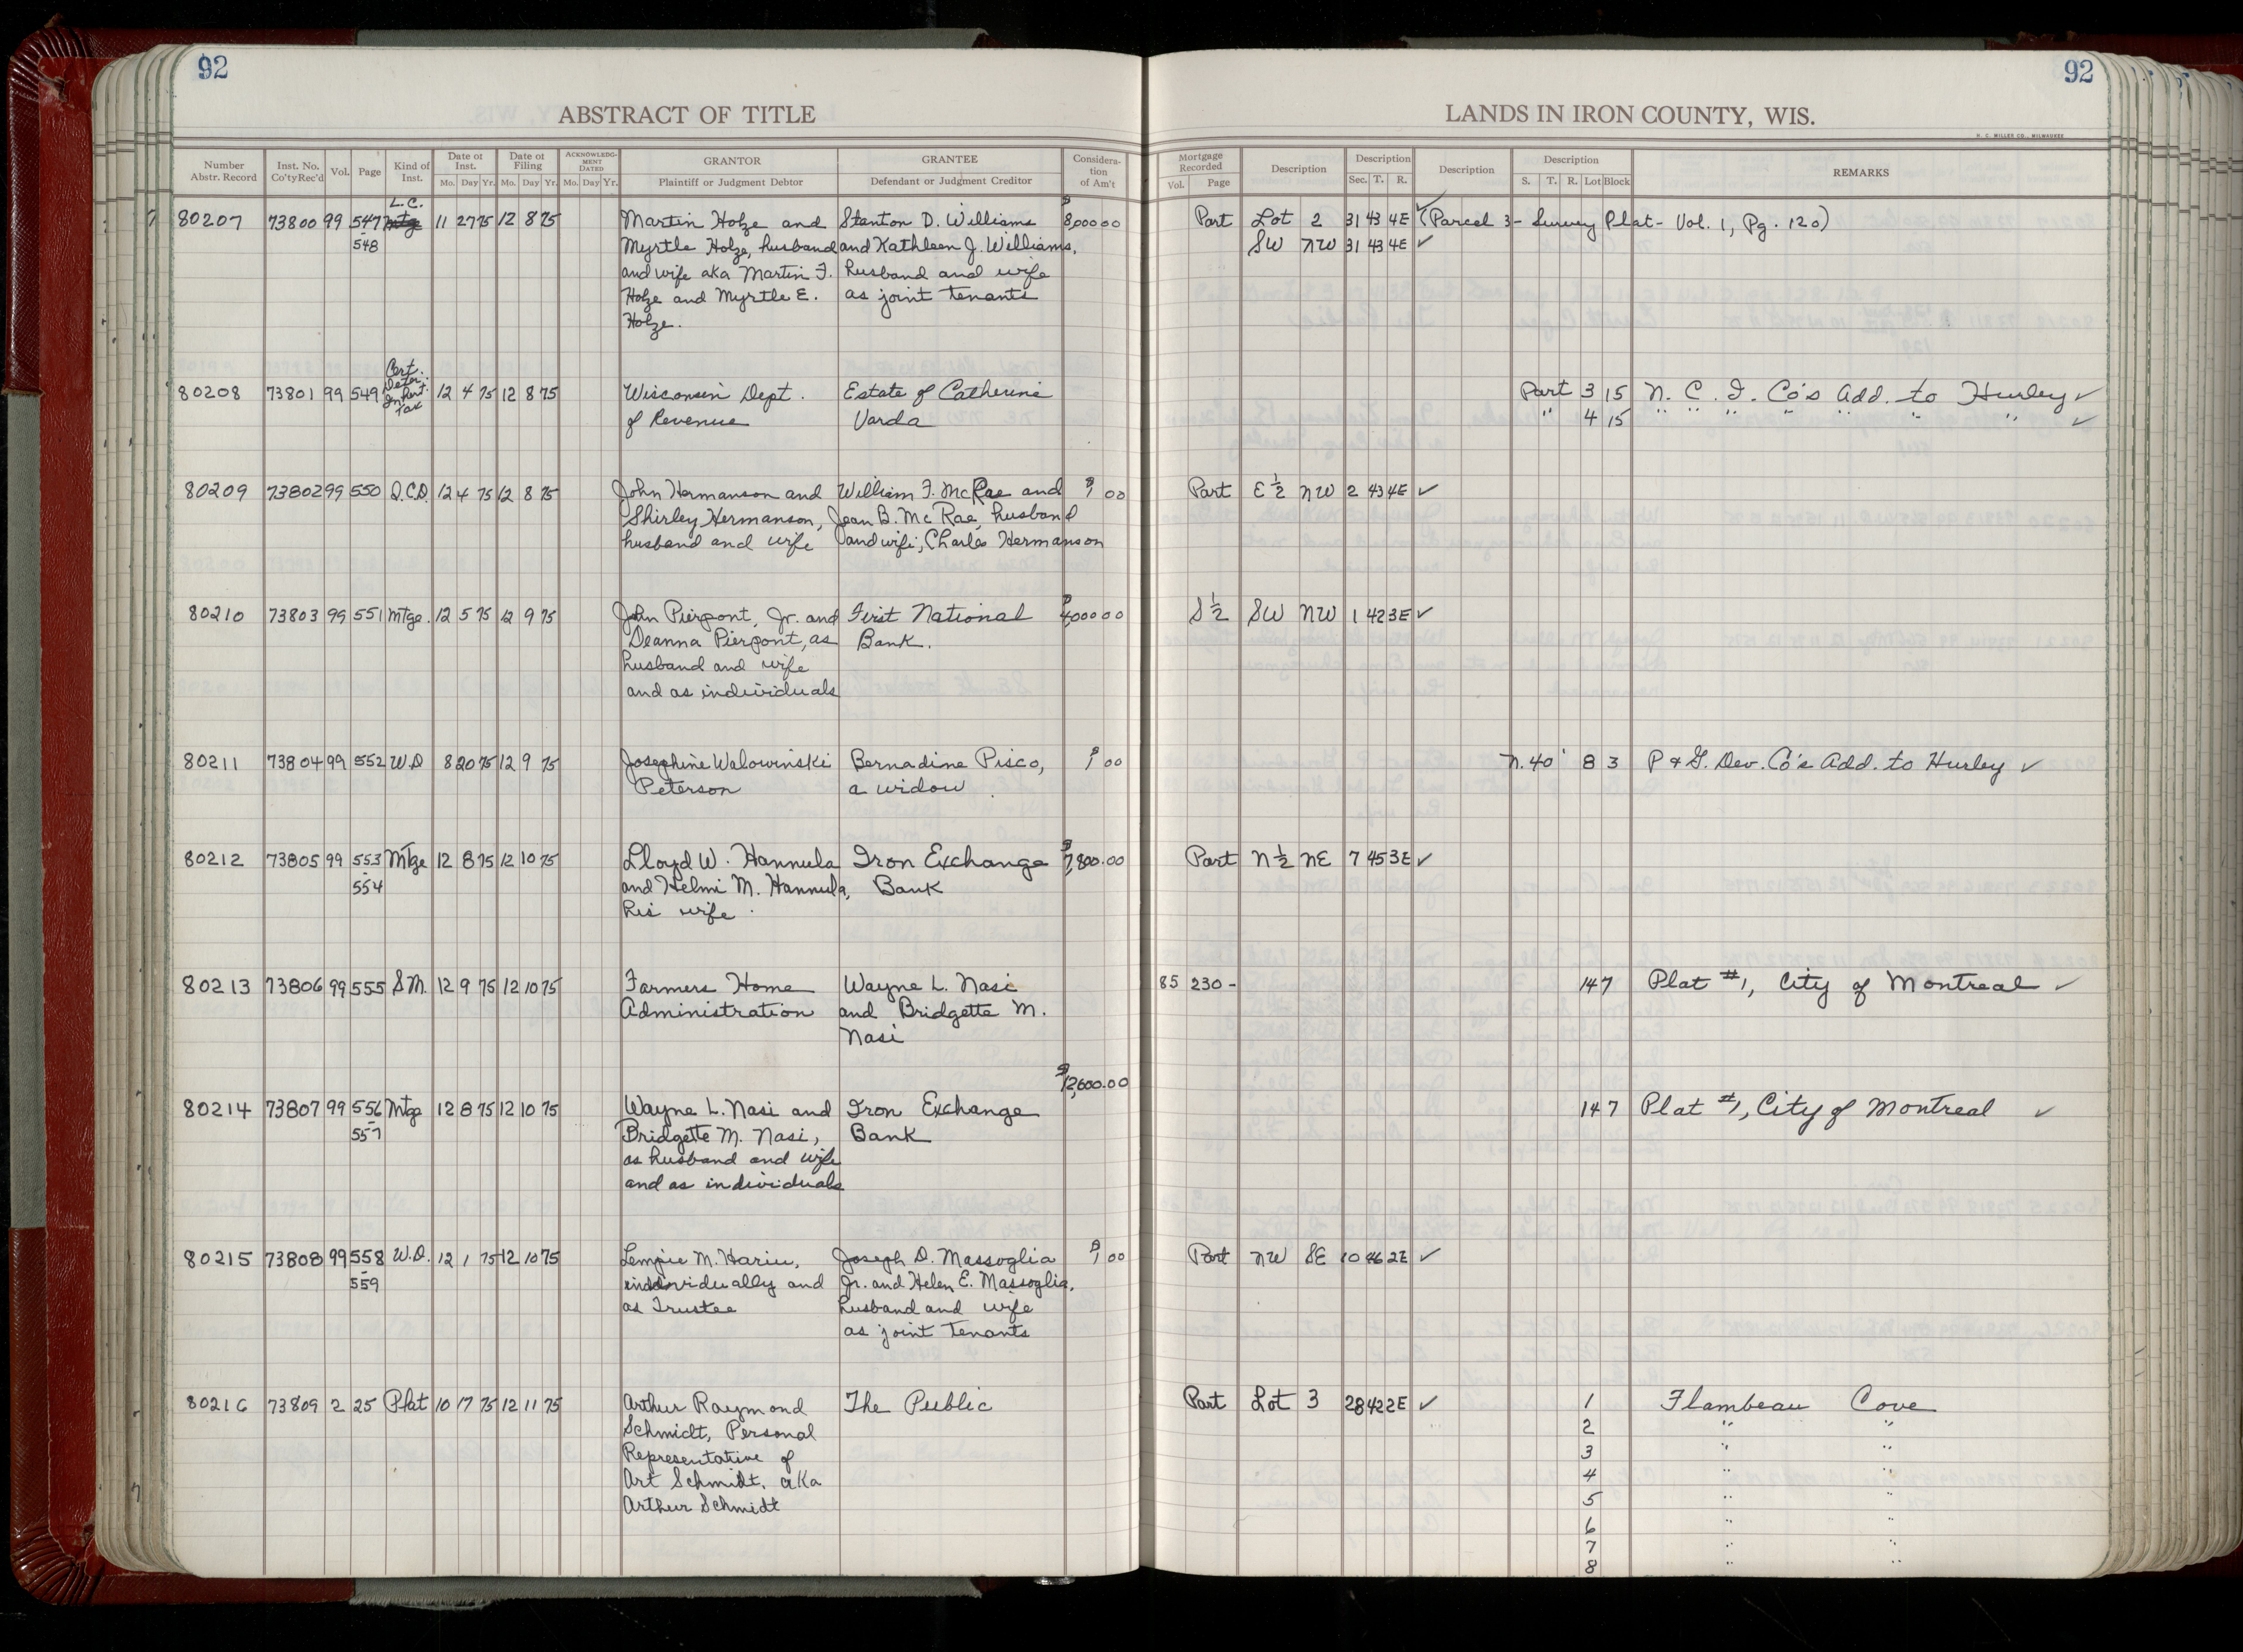 92
92
ABSTRACT OF TITLE
LANDS IN IRON COUNTY, WIS.
H. C. MILLER CO., MILWAUKEE
Number Abstr. Record | Inst. No. Co'ty Rec'd | Vol. | Page | Kind of Inst. | Date of Inst. Mo. Day Yr. | Date of Filing Mo. Day Yr. | ACKNOWLEDGMENT DATED Mo. Day Yr. | GRANTOR Plaintiff or Judgment Debtor | GRANTEE Defendant or Judgment Creditor | Consideration of Am't
Mortgage Recorded Vol. Page | Description | Description Sec. T. R. | Description | Description S. T. R. Lot Block | REMARKS
L.C.
80207 73800 99 547 Mtg 11 27 75 12 8 75 Martin Holze and Stanton D. Williams $8,000 00 Part Lot 2 31 43 4E (Parcel 3 - Survey Plat - Vol. 1, Pg. 120)
- 548 Myrtle Holze, husband and Kathleen J. Williams, SW NW 31 43 4E ✓
and wife aka Martin F. husband and wife
Holze and Myrtle E. as joint tenants
Holze.
Cert.
Deter.
80208 73801 99 549 Inherit. 12 4 75 12 8 75 Wisconsin Dept. Estate of Catherine Part 3 15 N. C. I. Co's Add. to Hurley ✓
Tax
of Revenue Varda " 4 15 " " " " " " " ✓
80209 73802 99 550 Q.C.D. 12 4 75 12 8 75 John Hermanson and William F. McRae and $1 00 Part E ½ NW 2 43 4E ✓
Shirley Hermanson, Jean B. McRae, husband
husband and wife and wife; Charles Hermanson
80210 73803 99 551 Mtge. 12 5 75 12 9 75 John Pierpont, Jr. and First National $4,000 00 S ½ SW NW 1 42 3E ✓
Deanna Pierpont, as Bank.
husband and wife
and as individuals
80211 73804 99 552 W.D 8 20 75 12 9 75 Josephine Walowinski Bernadine Pisco, $1 00 N. 40' 8 3 P & G. Dev. Co's Add. to Hurley ✓
Peterson a widow
80212 73805 99 553 Mtge 12 8 75 12 10 75 Lloyd W. Hannula Iron Exchange $7,800.00 Part N ½ NE 7 45 3E ✓
- 554 and Helmi M. Hannula, Bank
his wife
80213 73806 99 555 S.M. 12 9 75 12 10 75 Farmers Home Wayne L. Nasi 85 230 - 147 Plat #1, City of Montreal ✓
Administration and Bridgette M.
Nasi
$12,600.00
80214 73807 99 556 Mtge 12 8 75 12 10 75 Wayne L. Nasi and Iron Exchange 147 Plat #1, City of Montreal ✓
- 557 Bridgette M. Nasi, Bank
as husband and wife
and as individuals
80215 73808 99 558 W.D. 12 1 75 12 10 75 Lempie M. Hariu, Joseph D. Massoglia $1 00 Part NW SE 10 46 2E ✓
- 559 individually and Jr. and Helen E. Massoglia,
as Trustee husband and wife
as joint tenants
80216 73809 2 25 Plat 10 17 75 12 11 75 Arthur Raymond The Public Part Lot 3 28 42 2E ✓ 1 Flambeau Cove
Schmidt, Personal 2 " "
Representative of 3 " "
Art Schmidt, aka 4 " "
Arthur Schmidt 5 " "
6 " "
7 " "
8 " "